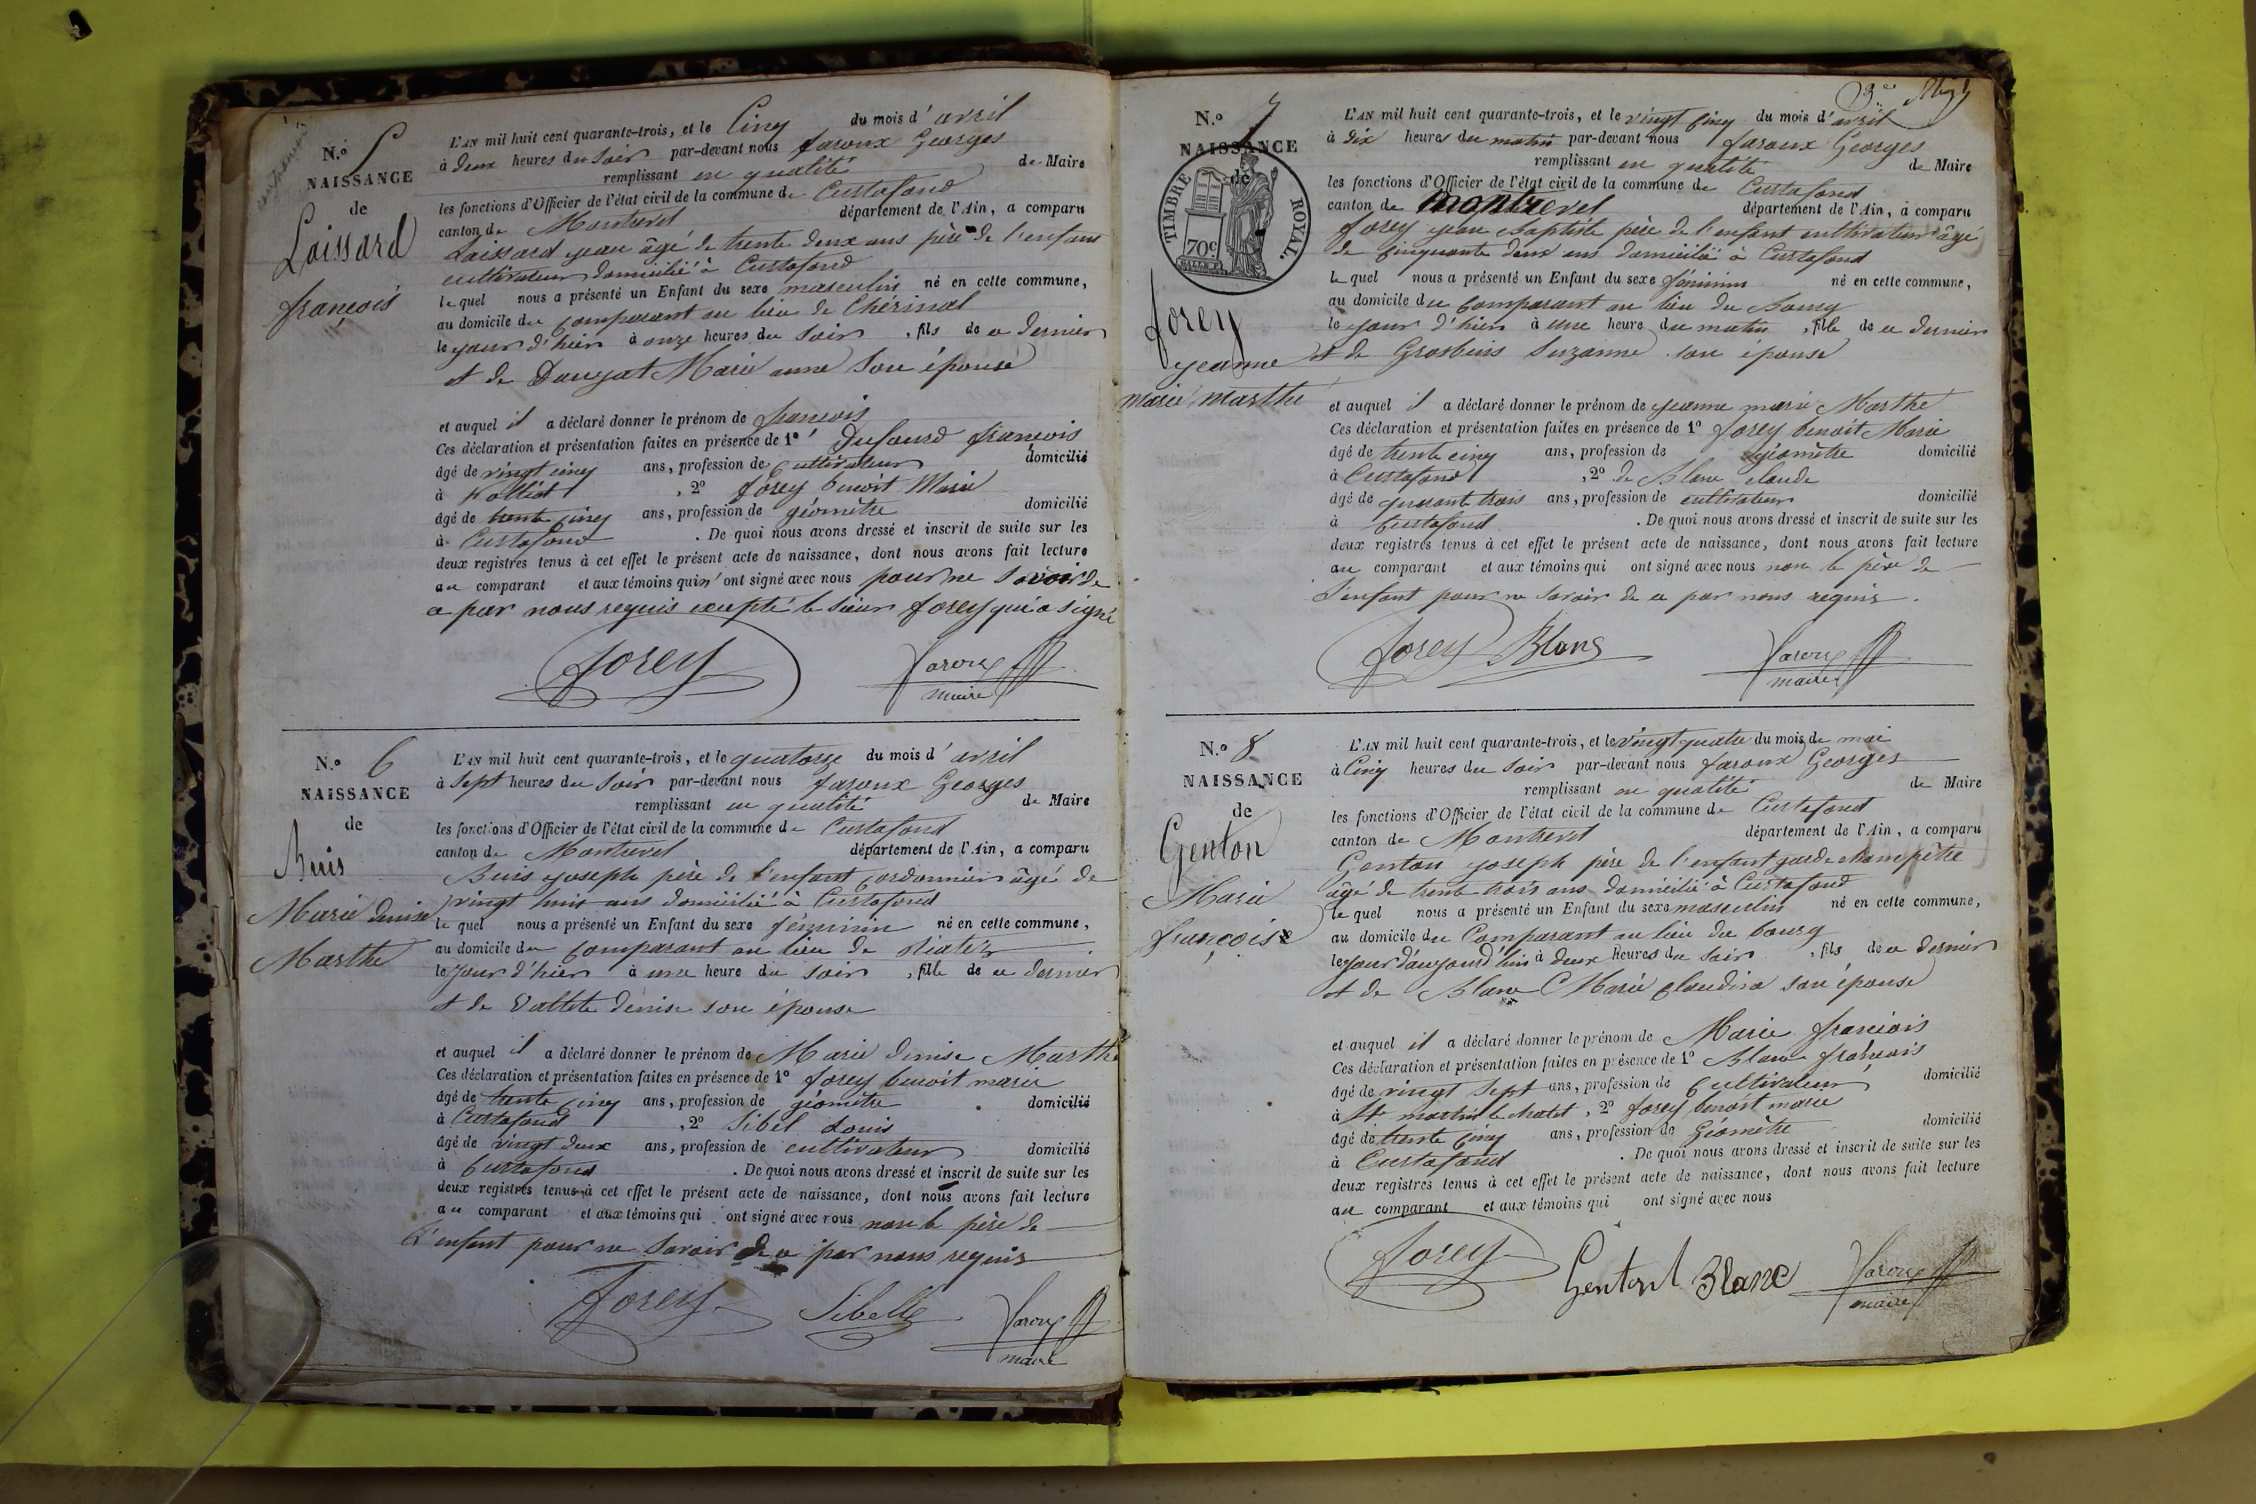 N.o 5
NAISSANCE
de
Loissard
françois
L'AN mil huit cent quarante-trois, et le Cinq du mois d'avril
à deux heures du Soir par-devant nous faroux Georges
remplissant en qualité de Maire
les fonctions d'Officier de l'état civil de la commune de Curtafond
canton de Montrevel département de l'Ain, a comparu
Loissard jean âgé de trente deux ans père de l'enfant
cultivateur domicilié à Curtafond
le quel nous a présenté un Enfant du sexe masculin né en cette commune,
au domicile du comparant au lieu de Chérinal
le jour d'hier à onze heures du Soir, fils de ce dernier
et de Dangat Marie anne Son épouse
et auquel il a déclaré donner le prénom de françois
Ces déclaration et présentation faites en présence de 1o Dufourd françois
âgé de vingt cinq ans, profession de Cultivateur domicilié
à , 2o forey benoit Marie
âgé de trente cinq ans, profession de géomètre domicilié
à Curtafond . De quoi nous avons dressé et inscrit de suite sur les
deux registres tenus à cet effet le présent acte de naissance, dont nous avons fait lecture
au comparant et aux témoins qui n'ont signé avec nous pour ne Savoir de
ce par nous requis excepté le Sieur forey qui a signé
forey faroux
maire
N.o 6
NAISSANCE
de
Buis
Marie denise
Marthe
L'AN mil huit cent quarante-trois, et le quatorze du mois d'avril
à Sept heures du Soir par-devant nous faroux Georges
remplissant en qualité de Maire
les fonctions d'Officier de l'état civil de la commune de Curtafond
canton de Montrevel département de l'Ain, a comparu
Buis joseph père de l'enfant cordonnier âgé de
vingt huit ans domicilié à Curtafond
le quel nous a présenté un Enfant du sexe féminin né en cette commune,
au domicile du comparant au lieu de
le jour d'hier à une heure du soir, fille de ce dernier
et de Vallete denise son épouse
et auquel il a déclaré donner le prénom de Marie denise Marthe
Ces déclaration et présentation faites en présence de 1o forey benoit marie
âgé de trente cinq ans, profession de géomètre domicilié
à Curtafond , 2o Sibel Louis
âgé de vingt deux ans, profession de cultivateur domicilié
à Curtafond . De quoi nous avons dressé et inscrit de suite sur les
deux registres tenus à cet effet le présent acte de naissance, dont nous avons fait lecture
au comparant et aux témoins qui ont signé avec nous non le père de
l'enfant pour ne Savoir de ce par nous requis
forey Sibelle faroux
maire
N.o 7
NAISSANCE
de
TIMBRE ROYAL
70c
forey
jeanne
marie marthe
L'AN mil huit cent quarante-trois, et le vingt cinq du mois d'avril
à dix heures du matin par-devant nous faroux Georges
remplissant en qualité de Maire
les fonctions d'Officier de l'état civil de la commune de Curtafond
canton de Montrevel département de l'Ain, a comparu
forey jean Baptiste père de l'enfant cultivateur âgé
de cinquante deux ans domicilié à Curtafond
le quel nous a présenté un Enfant du sexe féminin né en cette commune,
au domicile du comparant au lieu du Bourg
le jour d'hier à une heure du matin, fille de ce dernier
et de Grosbuis Suzanne son épouse
et auquel il a déclaré donner le prénom de jeanne marie Marthe
Ces déclaration et présentation faites en présence de 1o forey benoit Marie
âgé de trente cinq ans, profession de géomètre domicilié
à Curtafond , 2o de Blanc claude
âgé de quarante trois ans, profession de cultivateur domicilié
à Curtafond . De quoi nous avons dressé et inscrit de suite sur les
deux registres tenus à cet effet le présent acte de naissance, dont nous avons fait lecture
au comparant et aux témoins qui ont signé avec nous non le père de
l'enfant pour ne Savoir de ce par nous requis.
forey Blanc faroux
maire
N.o 8
NAISSANCE
de
Genton
Marie
françois
L'AN mil huit cent quarante-trois, et le vingt quatre du mois de mai
à Cinq heures du Soir par-devant nous faroux Georges
remplissant en qualité de Maire
les fonctions d'Officier de l'état civil de la commune de Curtafond
canton de Montrevel département de l'Ain, a comparu
Genton joseph père de l'enfant garde champêtre
âgé de trente trois ans domicilié à Curtafond
le quel nous a présenté un Enfant du sexe masculin né en cette commune,
au domicile du Comparant au lieu du bourg
le jour d'aujourd'hui à deux heures du Soir, fils de ce dernier
et de Blanc Marie claudine son épouse
et auquel il a déclaré donner le prénom de Marie françois
Ces déclaration et présentation faites en présence de 1o Blanc françois
âgé de vingt Sept ans, profession de Cultivateur domicilié
à St martin le chatel, 2o forey benoit marie
âgé de trente cinq ans, profession de Géomètre domicilié
à Curtafond . De quoi nous avons dressé et inscrit de suite sur les
deux registres tenus à cet effet le présent acte de naissance, dont nous avons fait lecture
au comparant et aux témoins qui ont signé avec nous
forey Genton Blanc faroux
maire